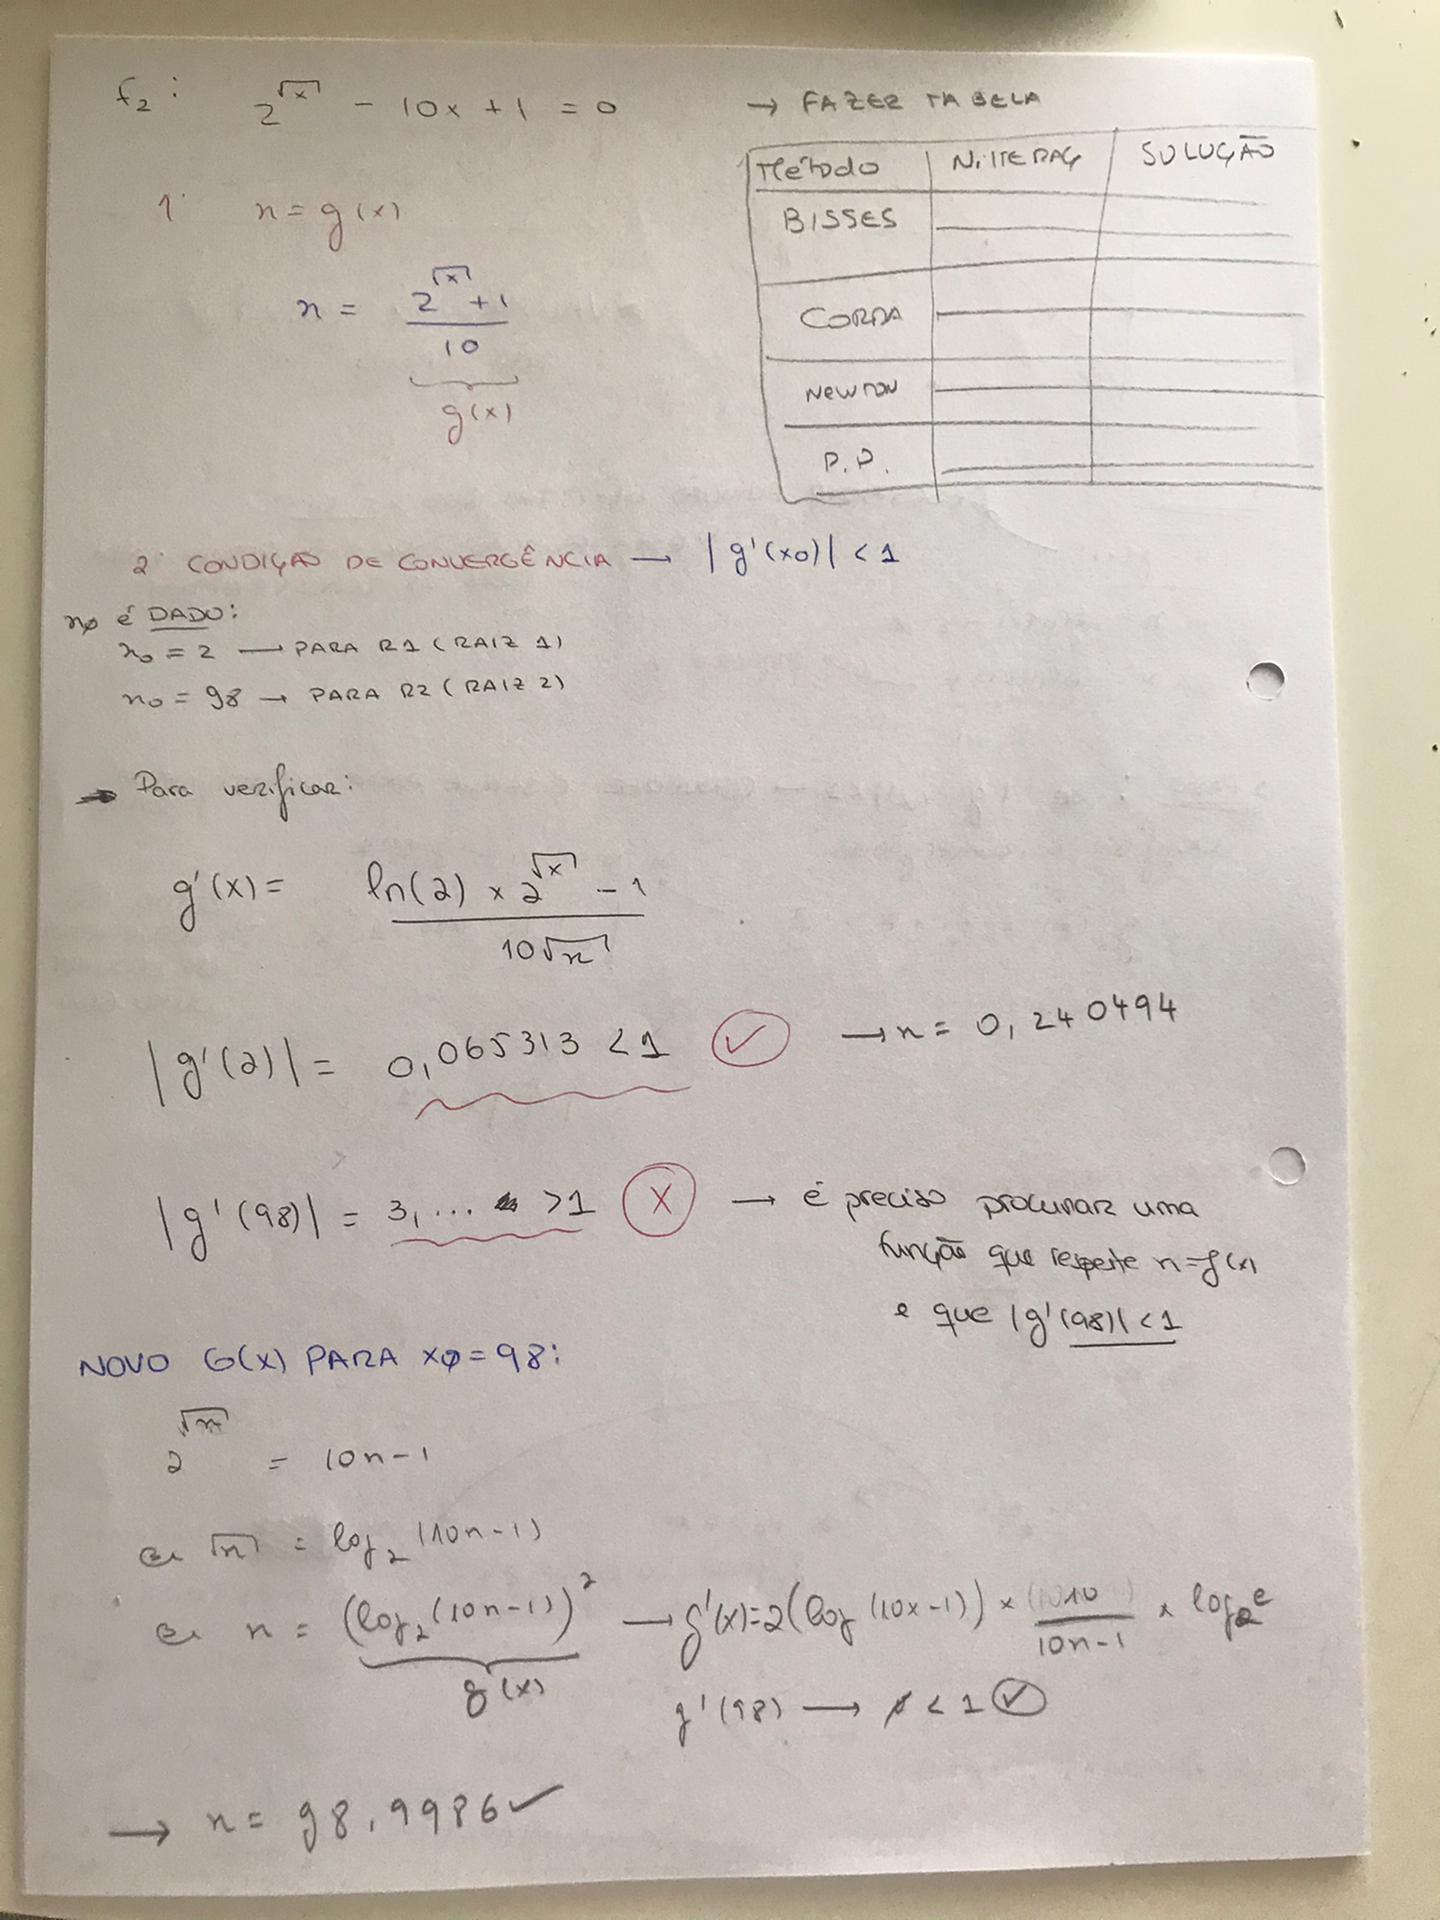 f2: 2^√x - 10x + 1 = 0 → FAZER TABELA
Método | N.ITERAÇ | SOLUÇÃO
BISSES
CORDA
NEWTON
P.P.
1. x = g(x)
x = (2^√x + 1) / 10
g(x)
2. CONDIÇÃO DE CONVERGÊNCIA → |g'(x0)| < 1
x0 é DADO:
x0 = 2 → PARA R1 (RAIZ 1)
x0 = 98 → PARA R2 (RAIZ 2)
→ Para verificar:
g'(x) = (ln(2) × 2^√x - 1) / (10√x)
|g'(2)| = 0,065313 < 1 ✓ → x = 0,240494
|g'(98)| = 3,... > 1 X → é preciso procurar uma
função que respeite x=g(x)
e que |g'(98)| < 1
NOVO G(X) PARA X0 = 98:
2^√x = 10x - 1
<=> √x = log2 (10x - 1)
<=> x = (log2 (10x - 1))^2 → g'(x) = 2(log (10x - 1)) × 10 / (10x - 1) × log2 e
g(x)
g'(98) → < 1 ✓
→ x = 98,9986 ✓